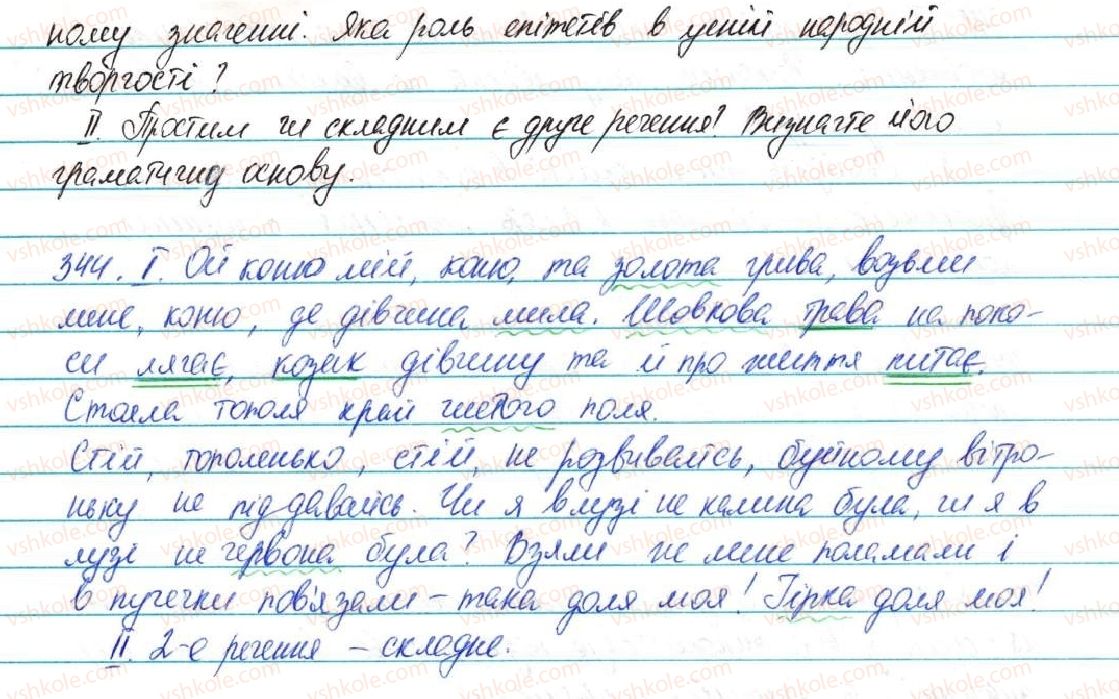 ному значенні. Яка роль епітетів в усній народній
творчості?
II. Простим чи складним є друге речення? Визначте його
граматичну основу.
344. I. Ой коню мій, коню, та золота грива, возьми
мене, коню, де дівчина мила. Шовкова трава на поко-
си лягає, козак дівчину та й про життя питає.
Стояла тополя край чистого поля.
Стій, тополенько, стій, не розвивайсь, буйному вітро-
ньку не піддавайсь. Чи я в лузі не калина була, чи я в
лузі не червона була? Взяли не мене поламали і
в пучечки пов'язали – така доля моя! Гірка доля моя!
II. 2-е речення – складне.
vshkole.com